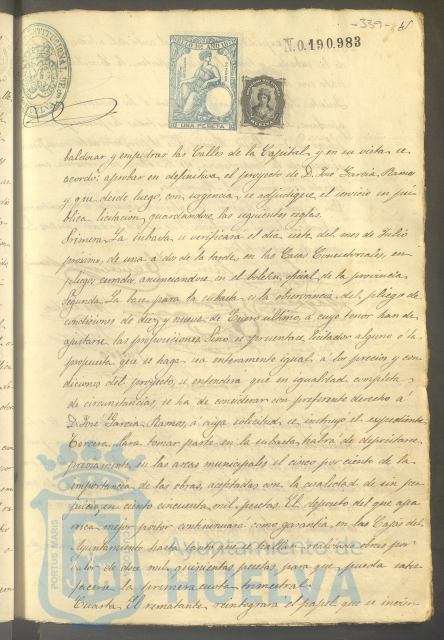 -339-
N.0.190.983
SELLO 11º AÑO 18
UNA PESETA
baldosar y empedrar las Calles de la Capital, y en su vista se
acordó: aprobar en definitiva el proyecto de D. José García Ramos
y que desde luego, con urgencia, se adjudique el servicio en pú
blica licitacion, guardandose las siguientes reglas.
Primera. La subasta, se verificará el dia siete del mes de Julio
proximo, de una á dos de la tarde, en las Casas Consistoriales, en
pliego cerrado, anunciandose en el boletin oficial de la provincia
Segunda. La base para la subasta es la observancia del pliego de
condiciones de diez y nueve de Enero último, á cuyo tenor han de
ajustarse las proposiciones. Si no se presentase licitador alguno ó la
propuesta que se haga sea enteramente igual á los precios y con
diciones del proyecto, se entenderá que en igualdad completa
de circunstancias, se ha de considerar con preferente derecho á
D. José García Ramos, á cuya solicitud, se instruyó el expediente.
Tercera. Para tomar parte en la subasta, habrá de depositarse
previamente en las arcas municipales el cinco por ciento de la
importancia de las obras, aceptadas con la cualidad de sin per
juicio, en ciento cincuenta mil pesetas. El deposito del que apa
rezca mejor postor continuará como garantia, en las Cajas del
Ayuntamiento hasta tanto que se hallen realizadas obras por
valor de doce mil quinientas pesetas, para que pueda satis
facerse la primera cuota trimestral.
Cuarta. El rematante reintegrará el papel que se invier
PORTUS MARIS
Ayuntamiento de
HUELVA